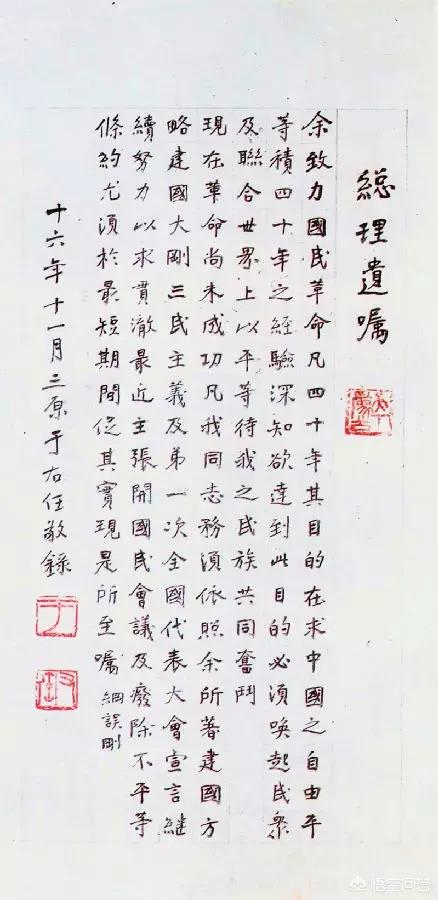 総理遺嘱
余致力國民革命凡四十年其目的在求中國之自由平
等積四十年之経驗深知欲達到此目的必須喚起民衆
及聯合世界上以平等待我之民族共同奮鬥
現在革命尚未成功凡我同志務須依照余所著建國方
略建國大剛三民主義及第一次全國代表大會宣言継
續努力以求貫澈最近主張開國民會議及廢除不平等
條約尤須於最短期間促其實現是所至嘱 綱誤剛
十六年十一月三原于右任敬錄
悟空问答